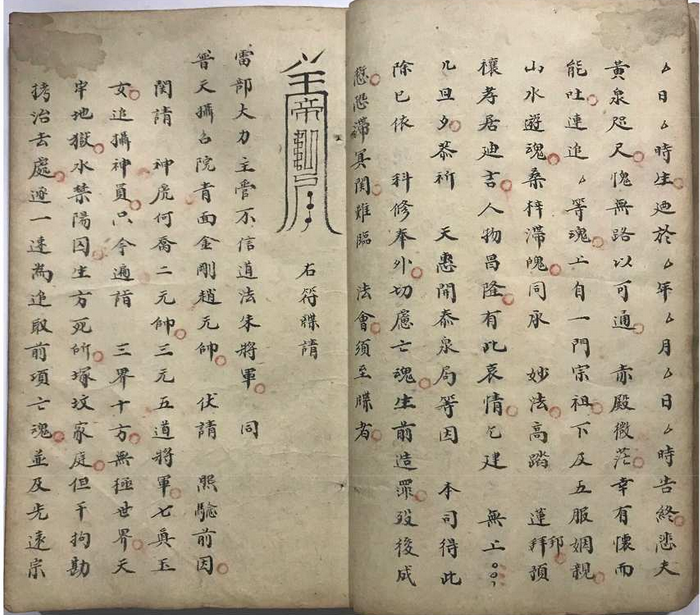 厶日厶時生廼於厶年厶月厶日厶時告終悲夫
黄泉咫尺愧無路以可通 赤殿微茫幸有懷而
能吐連追厶等魂上自一門宗祖下及五服姻親
山水遊魂桑梓滯魄同承 妙法高踏 蓬邦拜
孝居迪吉人物昌隆有此哀情乞建 無上
旦夕恭祈 天恩開泰泉局等因 本司得此
除已依 科修奉外切慮亡魂生前造罪歿後成
愆恐滯冥関難臨 法會須至牒者
右符牒請
雷部大力主管不信道法朱將軍 同
普天攝召院青面金剛趙元帥 伏請 照驗前因
関請 神虎何喬二元帥三元五道將軍七真玉
女追攝神員只今遍詣 三界十方無極世界天
牢地獄水禁陽囚生方死所塚坟家庭但干拘勘
拷治去處逐一逢為追取前項亡魂並及先遠宗